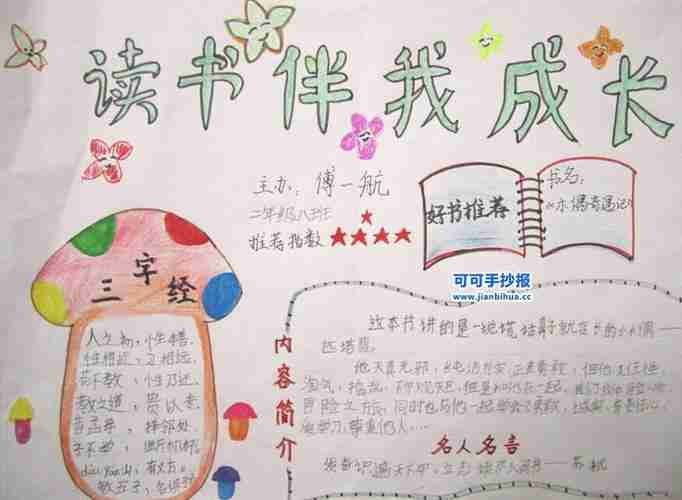 读书伴我成长
主办：傅一航
二年级八班
推荐指数★★★★★
好书推荐
书名：
《木偶奇遇记》
可可手抄报
www.jianbihua.cc
三字经
人之初，性本善。
性相近，习相远
苟不教，性乃迁。
教之道，贵以专
昔孟母，择邻处
子不学，断机杼。
dòu yān shān，有义方。
教五子，名俱扬
内容简介
这本书讲的是一个
匹诺曹。
他天真无邪，
淘气，
冒险之旅，同时也与他一起学会了勇敢，
名人名言
发奋识遍天下字，立志读尽人间书——苏轼